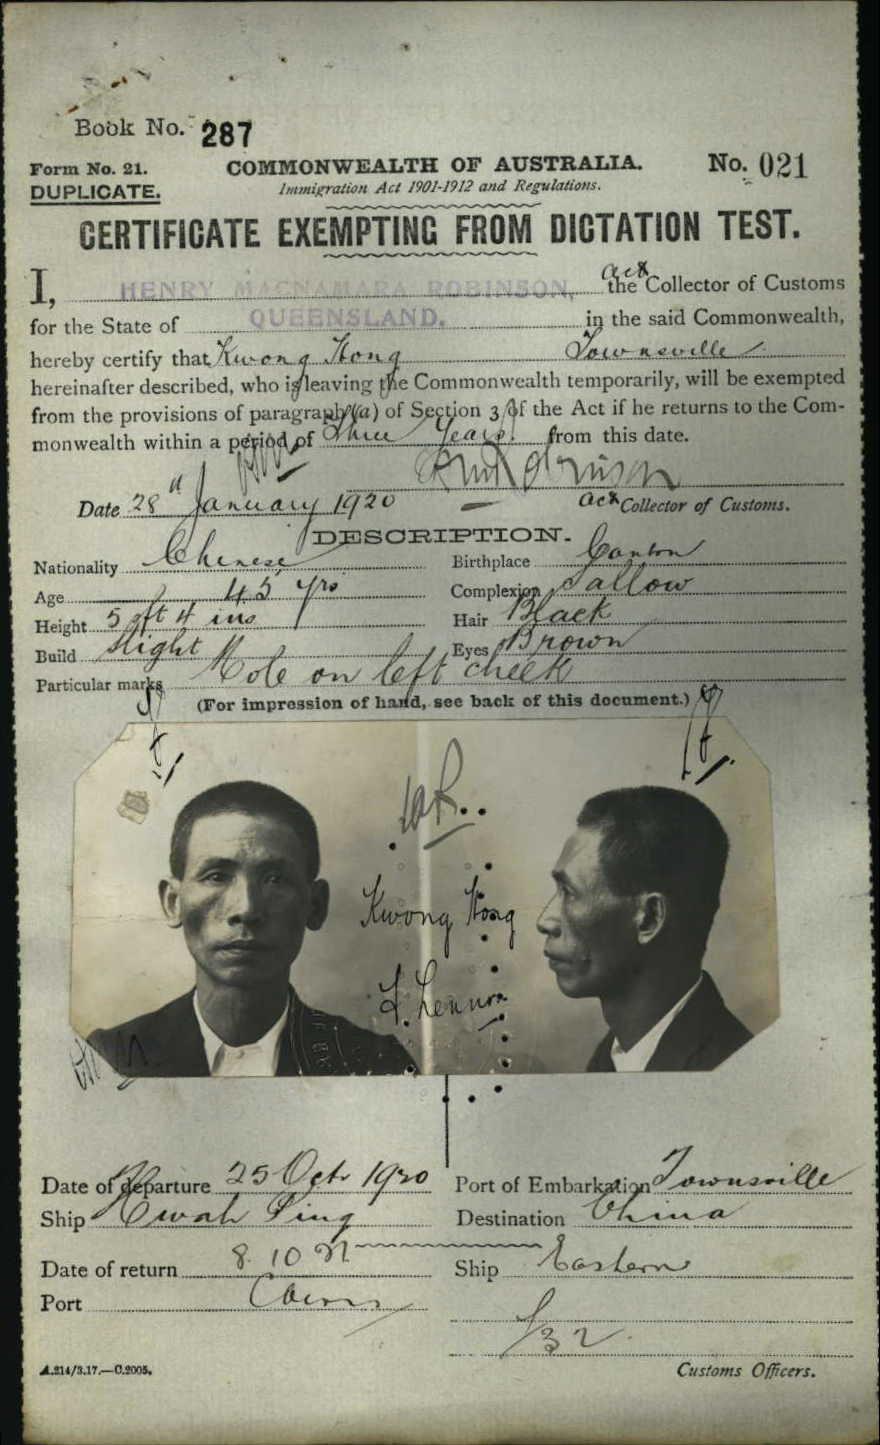 Book No. 287
Form No. 21. COMMONWEALTH OF AUSTRALIA. No. 021
DUPLICATE. Immigration Act 1901-1912 and Regulations.
CERTIFICATE EXEMPTING FROM DICTATION TEST.
I, HENRY MACNAMARA ROBINSON, actg the Collector of Customs
for the State of QUEENSLAND. in the said Commonwealth,
hereby certify that Kwong Hong Townsville
hereinafter described, who is leaving the Commonwealth temporarily, will be exempted
from the provisions of paragraph (a) of Section 3 of the Act if he returns to the Com-
monwealth within a period of Three Years from this date.
Date 28th January 1920 actg Collector of Customs.
DESCRIPTION.
Nationality Chinese Birthplace Canton
Age 45 yrs Complexion Sallow
Height 5 ft 4 ins Hair Black
Build Slight Eyes Brown
Particular marks Mole on left cheek
(For impression of hand, see back of this document.)
Kwong Hong
Date of departure 25 Oct 1920 Port of Embarkation Townsville
Ship Hwah Ping Destination China
Date of return 8 10 21 Ship Eastern
Port Cairns
A.214/3.17.—C.2005. Customs Officers.